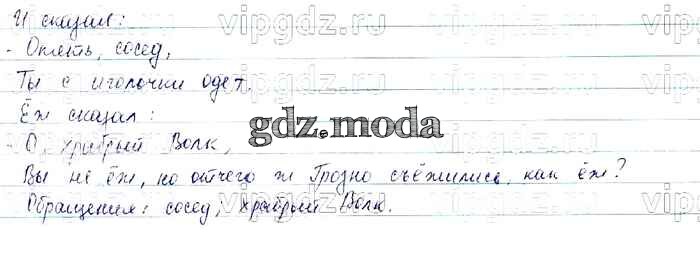 И сказал:
- Опять, сосед,
Ты с иголочки одет.
Ёж сказал:
- О, храбрый Волк,
Вы не ёж, но отчего ж Грозно съёжились, как ёж?
Обращения: сосед, храбрый Волк.
gdz.moda
vipgdz.ru